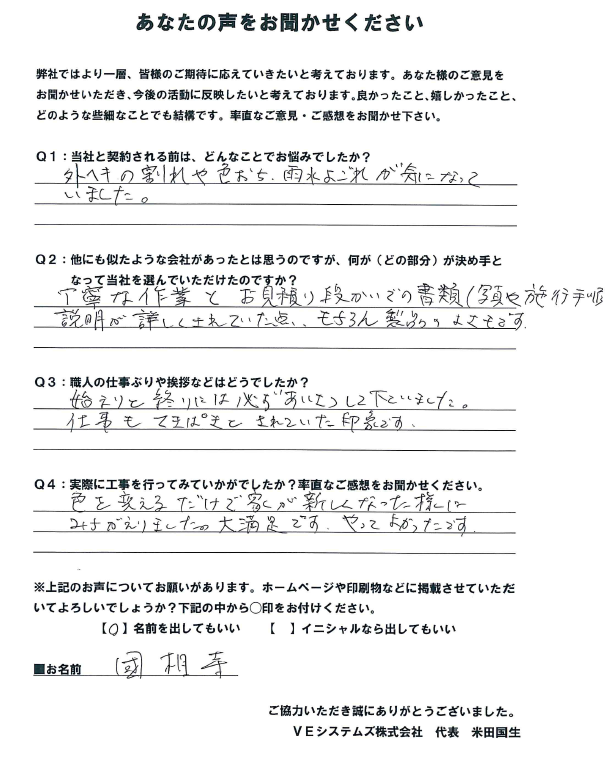 あなたの声をお聞かせください
弊社ではより一層、皆様のご期待に応えていきたいと考えております。あなた様のご意見を
お聞かせいただき、今後の活動に反映したいと考えております。良かったこと、嬉しかったこと、
どのような些細なことでも結構です。率直なご意見・ご感想をお聞かせ下さい。
Q1：当社と契約される前は、どんなことでお悩みでしたか？
外ヘキの割れや色おち、雨水よごれが気になって
いました。
Q2：他にも似たような会社があったとは思うのですが、何が（どの部分）が決め手と
なって当社を選んでいただけたのですか？
丁寧な作業とお見積り段かいでの書類（写真や施行手順
説明が詳しくされていた点、もちろん製品のよさもです。
Q3：職人の仕事ぶりや挨拶などはどうでしたか？
始まりと終りには必ずあいさつして下さいました。
仕事もてきぱきとされていた印象です。
Q4：実際に工事を行ってみていかがでしたか？率直なご感想をお聞かせください。
色を変えるだけで家が新しくなった様に
みちがえりました。大満足です。やってよかったです。
※上記のお声についてお願いがあります。ホームページや印刷物などに掲載させていただ
いてよろしいでしょうか？下記の中から○印をお付けください。
【○】名前を出してもいい　【　】イニシャルなら出してもいい
■お名前　國相
ご協力いただき誠にありがとうございました。
VEシステムズ株式会社　代表　米田国生